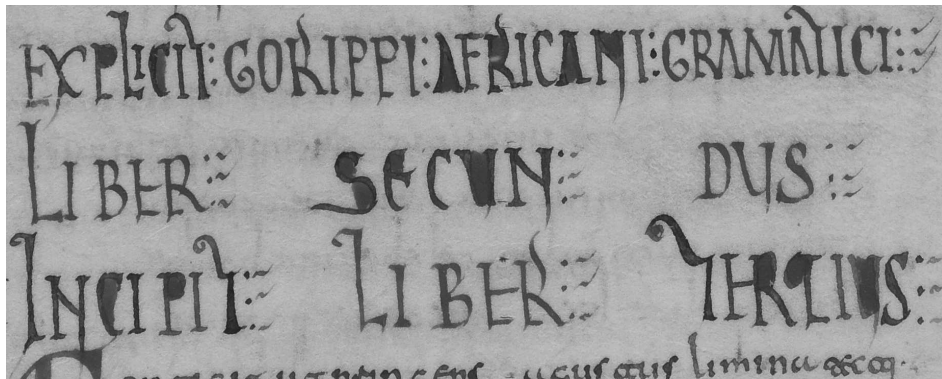 EXPLICIT: GORIPPI: AFRICANI: GRAMATICI:
LIBER SECUN DUS
INCIPIT LIBER TERTIUS:
limina